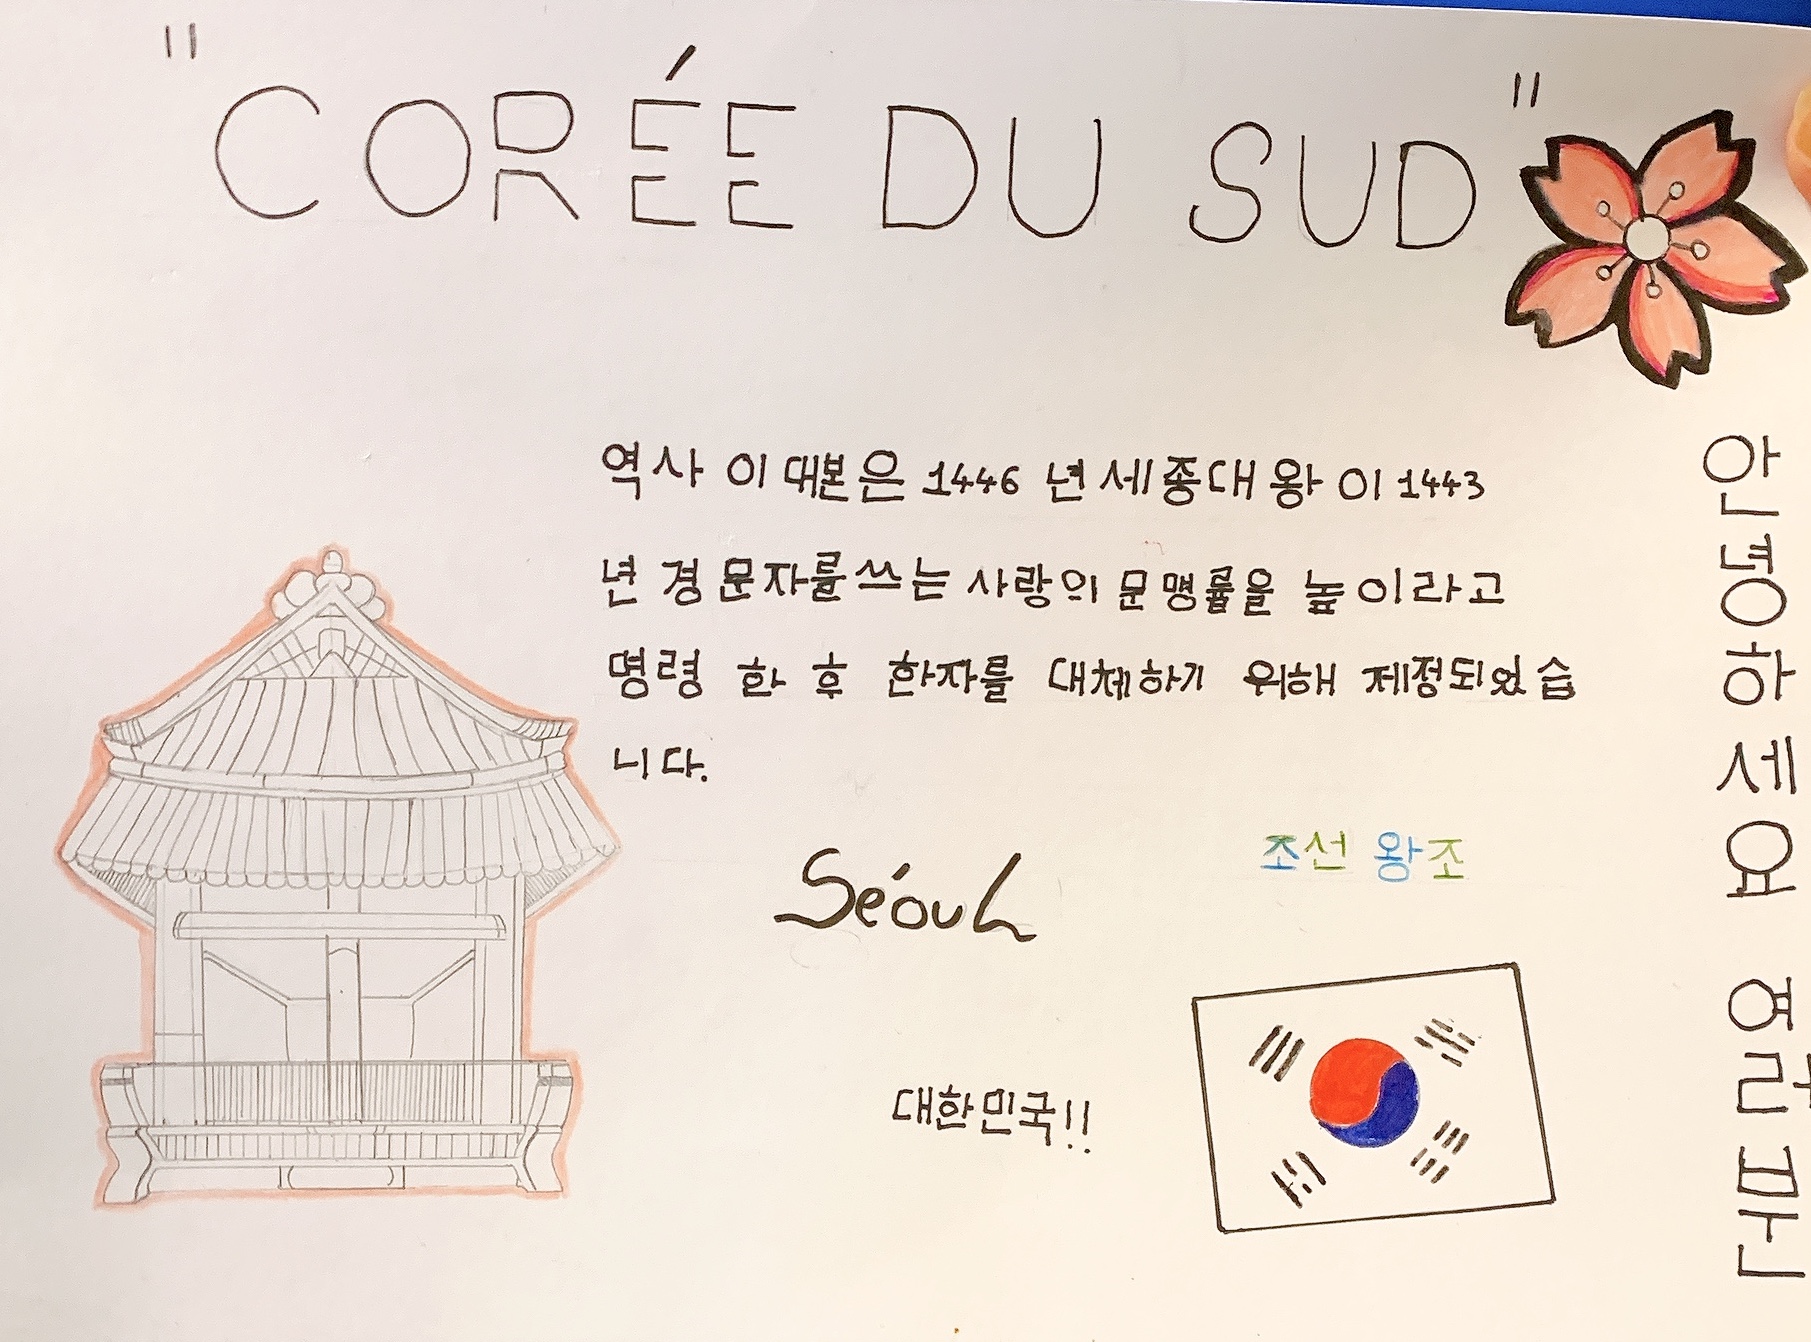 "CORÉE DU SUD"
역사 이 대본은 1446 년 세종대왕 이 1443
년 경 문자를 쓰는 사랑의 문명률을 높이라고
명령 한 후 한자를 대체하기 위해 제정되었습
니다.
Séoul
조선 왕조
대한민국!!
안녕하세요